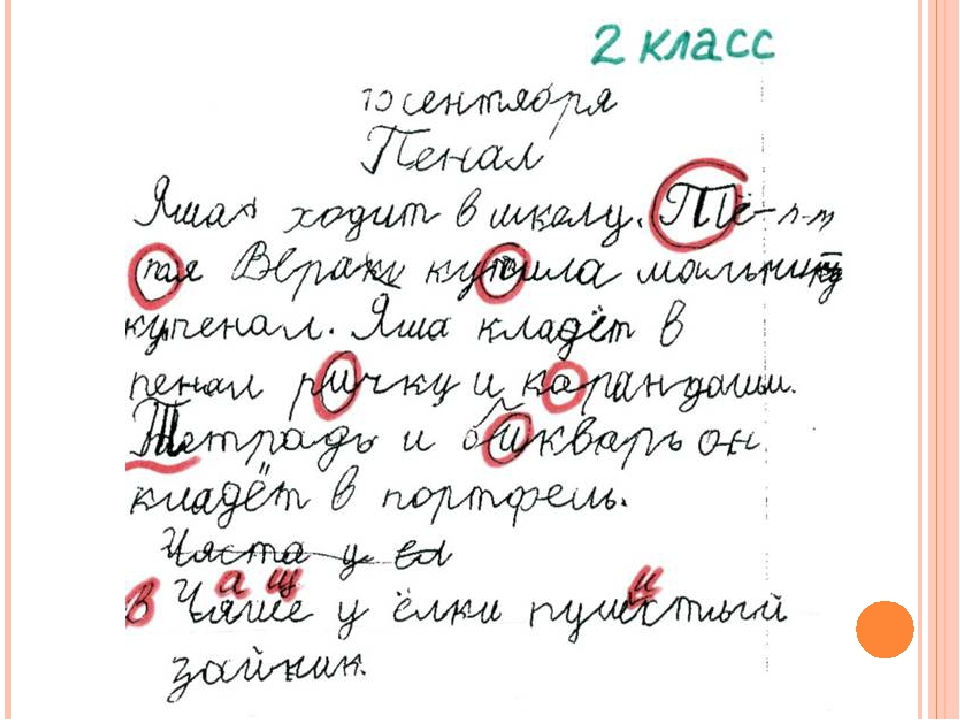 2 класс
10 сентября
Пенал
Яша ходит в школу. Тё-
пая Вера купила мальчику
купенал. Яша кладёт в
пенал ричку и карандаши.
Тетрадь и биикварь он
кладёт в портфель.
Чяста у ел
а щ и
В Чяше у ёлки пушстый
зайчик.